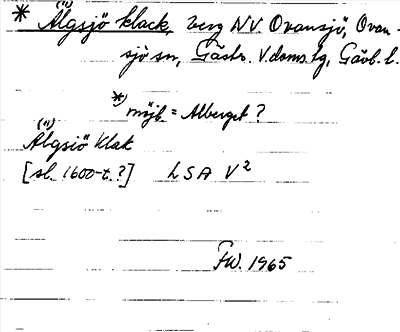 (")
* Älgsjö klack, berg NV Ovansjö, Ovan-
sjö sn, Gästr. V. doms. tg, Gävl. l.
*) möjl. = Alberget?
(")
Älgsiö Klak
[sl. 1600-t.?] LSA V2
FW. 1965